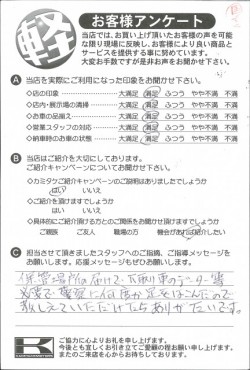 軽
お客様アンケート
当店では、お買い上げ頂いたお客様の声を可能
な限り現場に反映し、お客様により良い商品と
サービスを提供する事に努めています。
大変お手数ですが是非お声をお聞かせ下さい。
A 当店を実際にご利用になった印象をお聞かせ下さい。
◇店の印象 大満足 満足 ふつう やや不満 不満
◇店内・展示場の清掃 大満足 満足 ふつう やや不満 不満
◇お車の品揃え 大満足 満足 ふつう やや不満 不満
◇営業スタッフの対応 大満足 満足 ふつう やや不満 不満
◇納車時のお車の状態 大満足 満足 ふつう やや不満 不満
B 当店はご紹介を大切にしております。
ご紹介キャンペーンについてお聞かせ下さい。
◇カミタケご紹介キャンペーンのご説明はありましたでしょうか
はい いいえ
◇ご紹介を頂けますでしょうか
はい いいえ
◇具体的にご紹介頂ける方とのご関係をお聞かせ頂けますでしょうか
ご親族 ご友人 職場の方 機会があれば紹介したい
C 担当させて頂きましたスタッフへのご指摘、ご指導メッセージを
お願いします。応援メッセージもぜひお願いします。
保管場所の届けで下取り車のデーター等
必要で警察に何度か足をはこんだので
教えていただけたらありがたいです。
K
ご協力に心よりお礼を申し上げます。
今後とも宜しくお引き立てご愛顧の程お願い申し上げます。
またのご来店を心からお待ちしております。